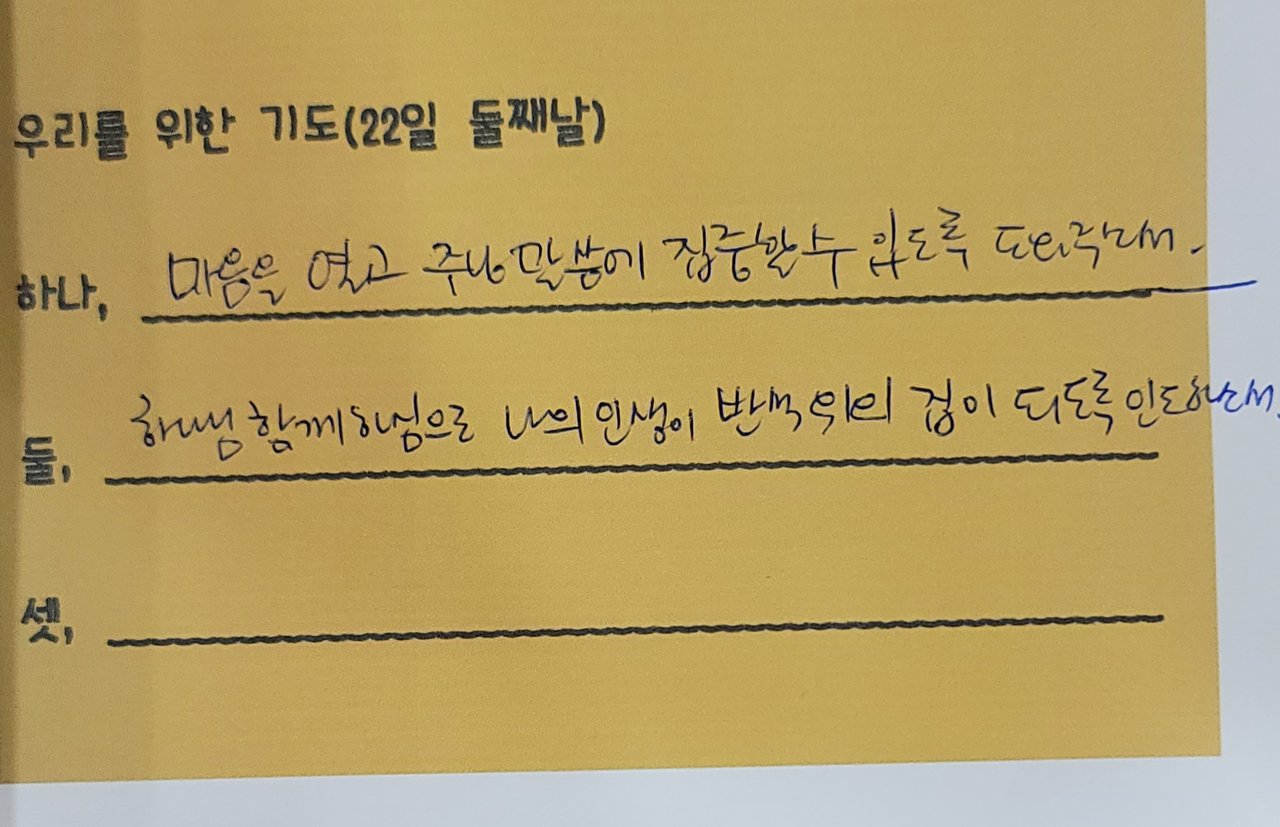 우리를 위한 기도(22일 둘째날)
하나, 마음을 열고 주님 말씀에 집중할 수 있도록 도와주소서.
둘, 하나님 함께하심으로 나의 인생이 반석 위의 집이 되도록 인도하소서.
셋,